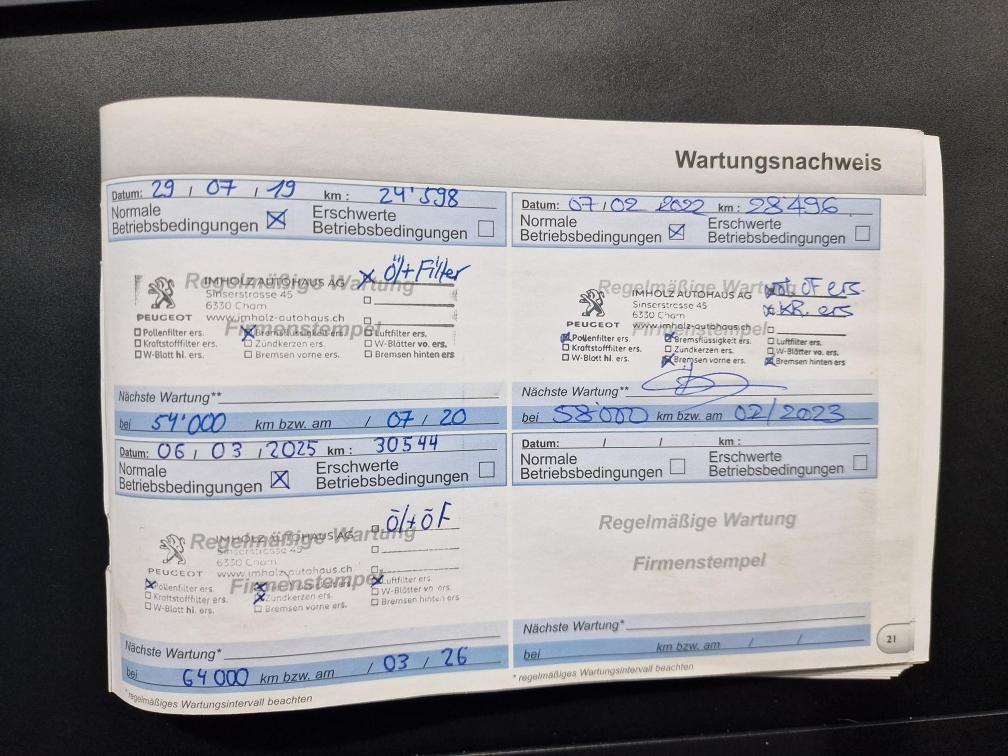 Wartungsnachweis
Datum: 29 / 07 / 19 km : 24'598
Normale
Betriebsbedingungen
Erschwerte
Betriebsbedingungen
Regelmäßige Wartung
Firmenstempel
IMHOLZ AUTOHAUS AG
Sinserstrasse 45
6330 Cham
www.imholz-autohaus.ch
PEUGEOT
Öl+Filter
Pollenfilter ers. Bremsflüssigkeit ers. Luftfilter ers.
Kraftstofffilter ers. Zündkerzen ers. W-Blätter vo. ers.
W-Blatt hi. ers. Bremsen vorne ers. Bremsen hinten ers
Nächste Wartung**
bei 54'000 km bzw. am / 07 / 20
Datum: 07 / 02 2022 km : 28496
Normale
Betriebsbedingungen
Erschwerte
Betriebsbedingungen
Regelmäßige Wartung
Firmenstempel
IMHOLZ AUTOHAUS AG
Sinserstrasse 45
6330 Cham
www.imholz-autohaus.ch
PEUGEOT
OF ers.
KR. ers
Pollenfilter ers. Bremsflüssigkeit ers. Luftfilter ers.
Kraftstofffilter ers. Zündkerzen ers. W-Blätter vo. ers.
W-Blatt hi. ers. Bremsen vorne ers. Bremsen hinten ers
Nächste Wartung**
bei 58'000 km bzw. am 02/2023
Datum: 06 / 03 / 2025 km : 30544
Normale
Betriebsbedingungen
Erschwerte
Betriebsbedingungen
Regelmäßige Wartung
Firmenstempel
IMHOLZ AUTOHAUS AG
Sinserstrasse 45
6330 Cham
www.imholz-autohaus.ch
PEUGEOT
Öl+ÖF
Pollenfilter ers. Luftfilter ers.
Kraftstofffilter ers. Zündkerzen ers. W-Blätter vo. ers.
W-Blatt hi. ers. Bremsen vorne ers. Bremsen hinten ers
Nächste Wartung*
bei 64000 km bzw. am / 03 / 26
* regelmäßiges Wartungsintervall beachten
Datum: / / km :
Normale
Betriebsbedingungen
Erschwerte
Betriebsbedingungen
Regelmäßige Wartung
Firmenstempel
Nächste Wartung*
bei km bzw. am / /
* regelmäßiges Wartungsintervall beachten
21